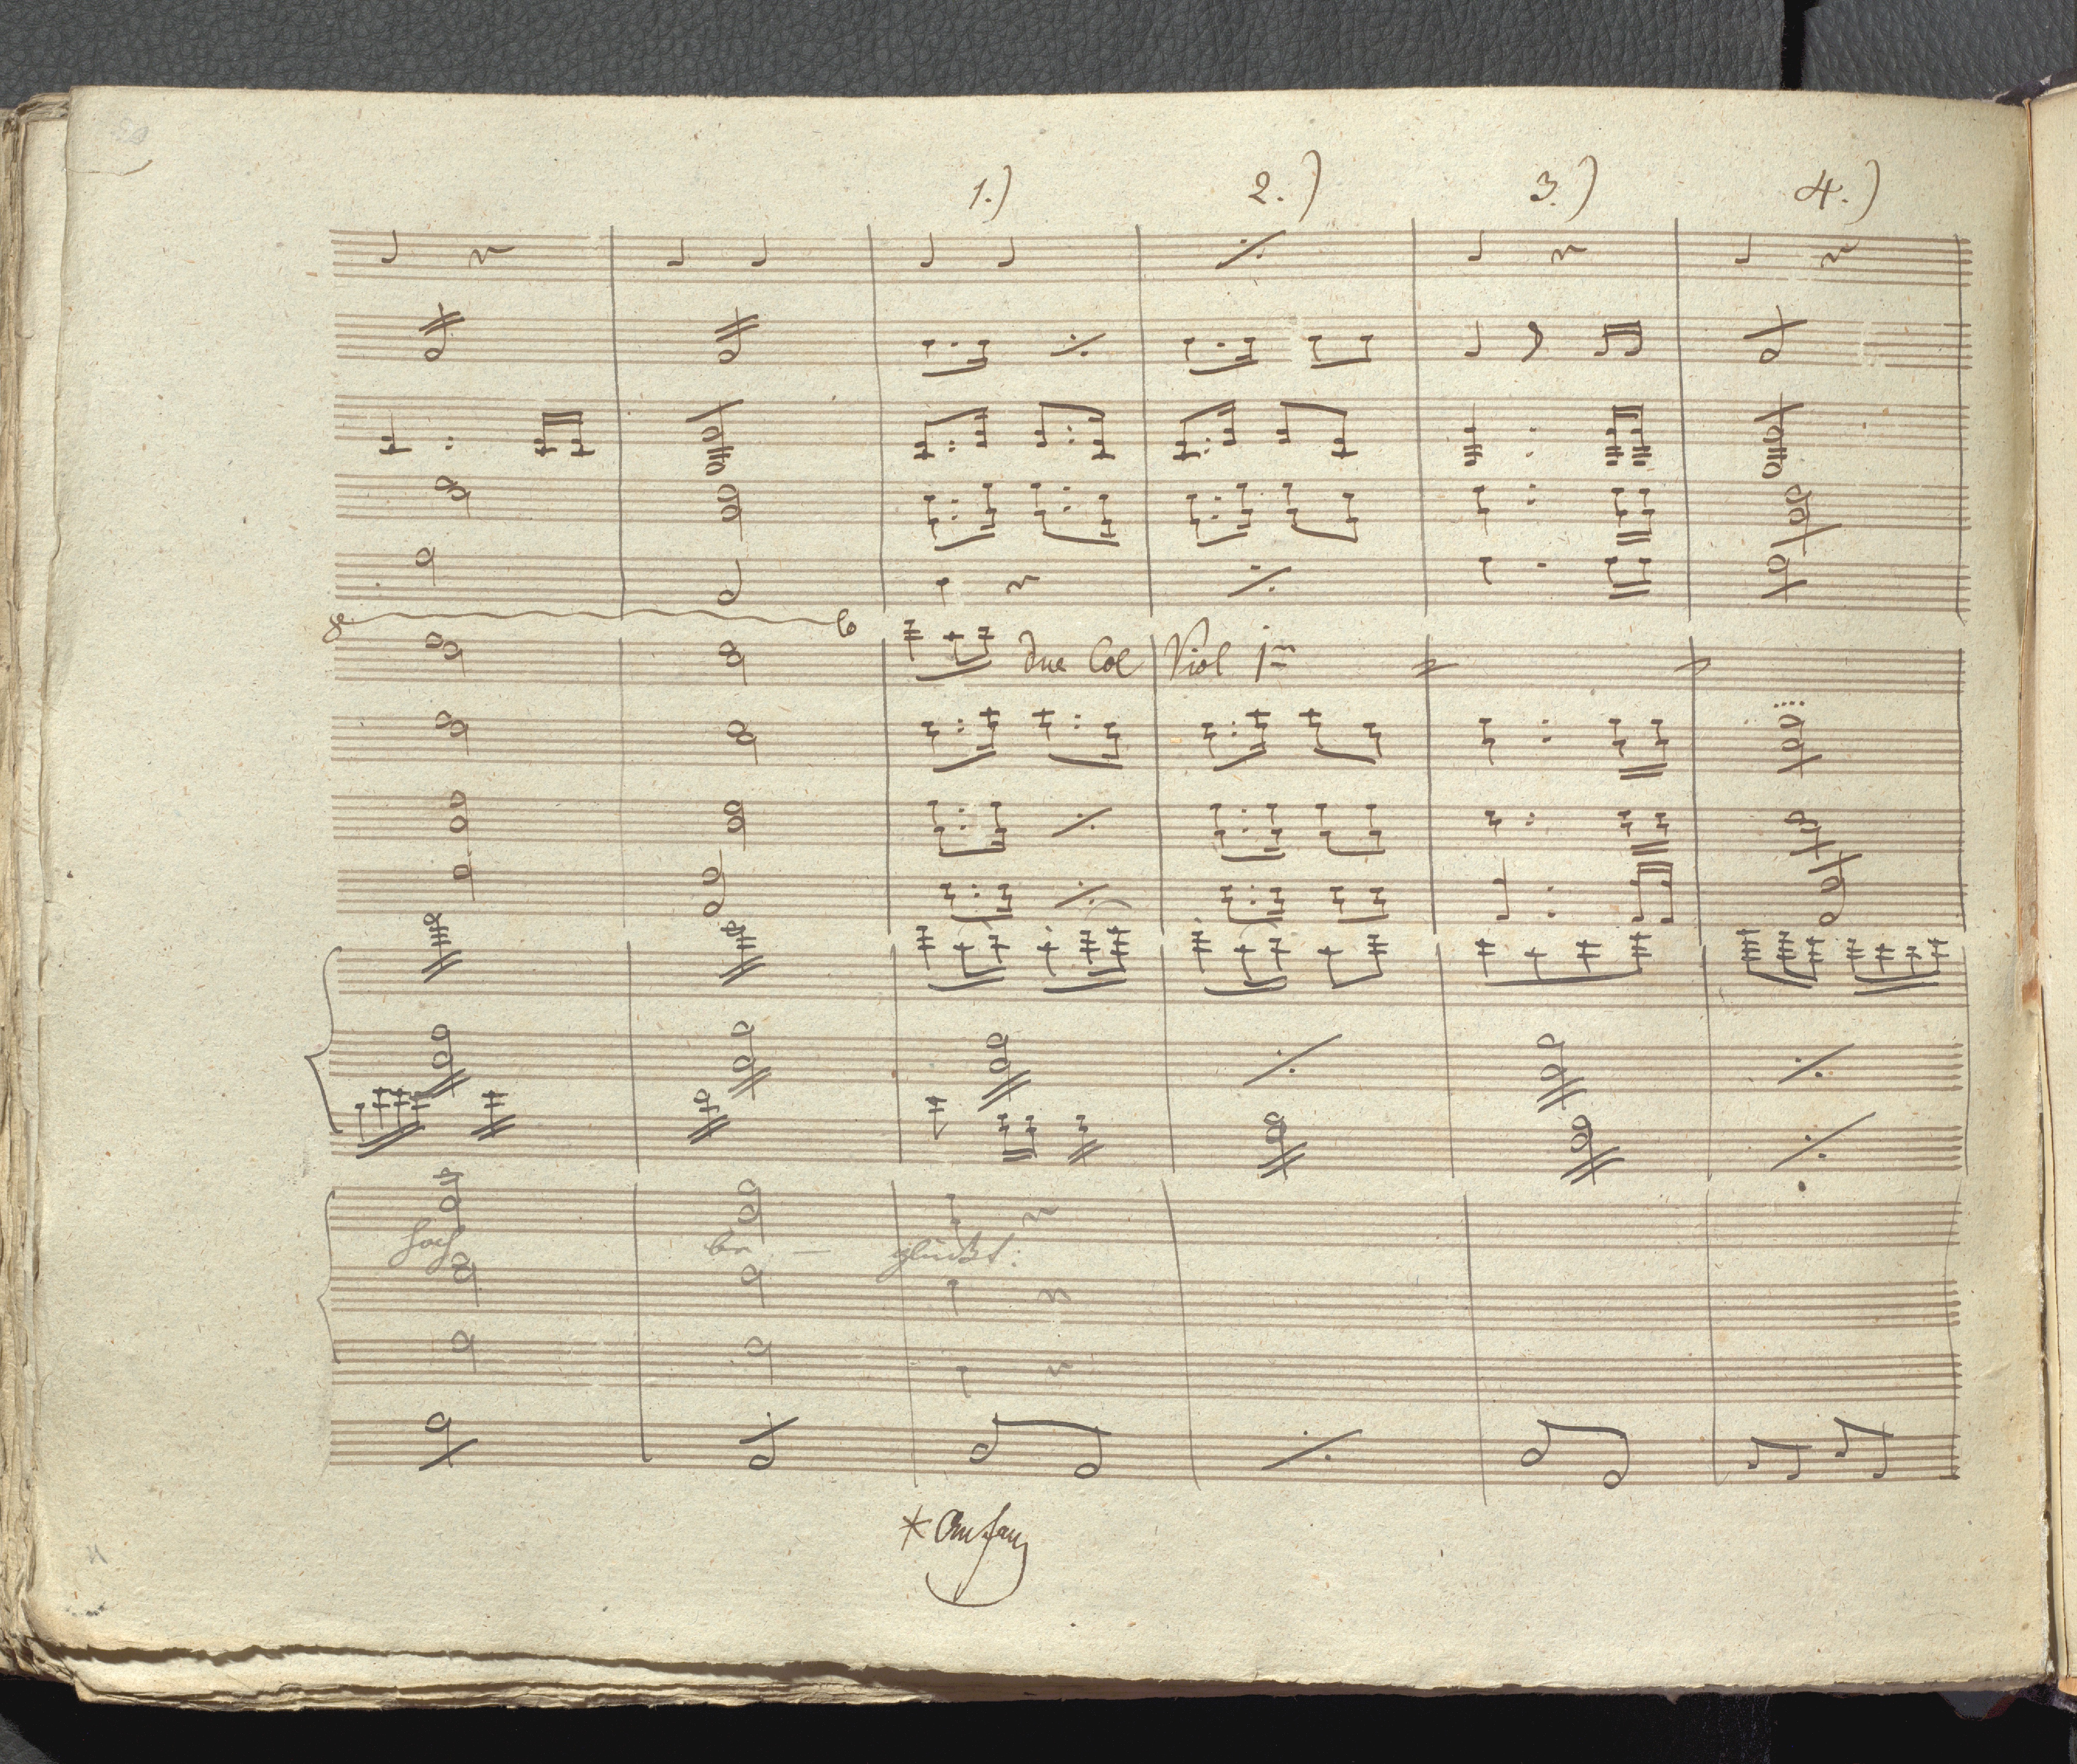 1.) 2.) 3.) 4.)
8 6
due Col Viol 1mo
hoch be - glückt:
* Anfang